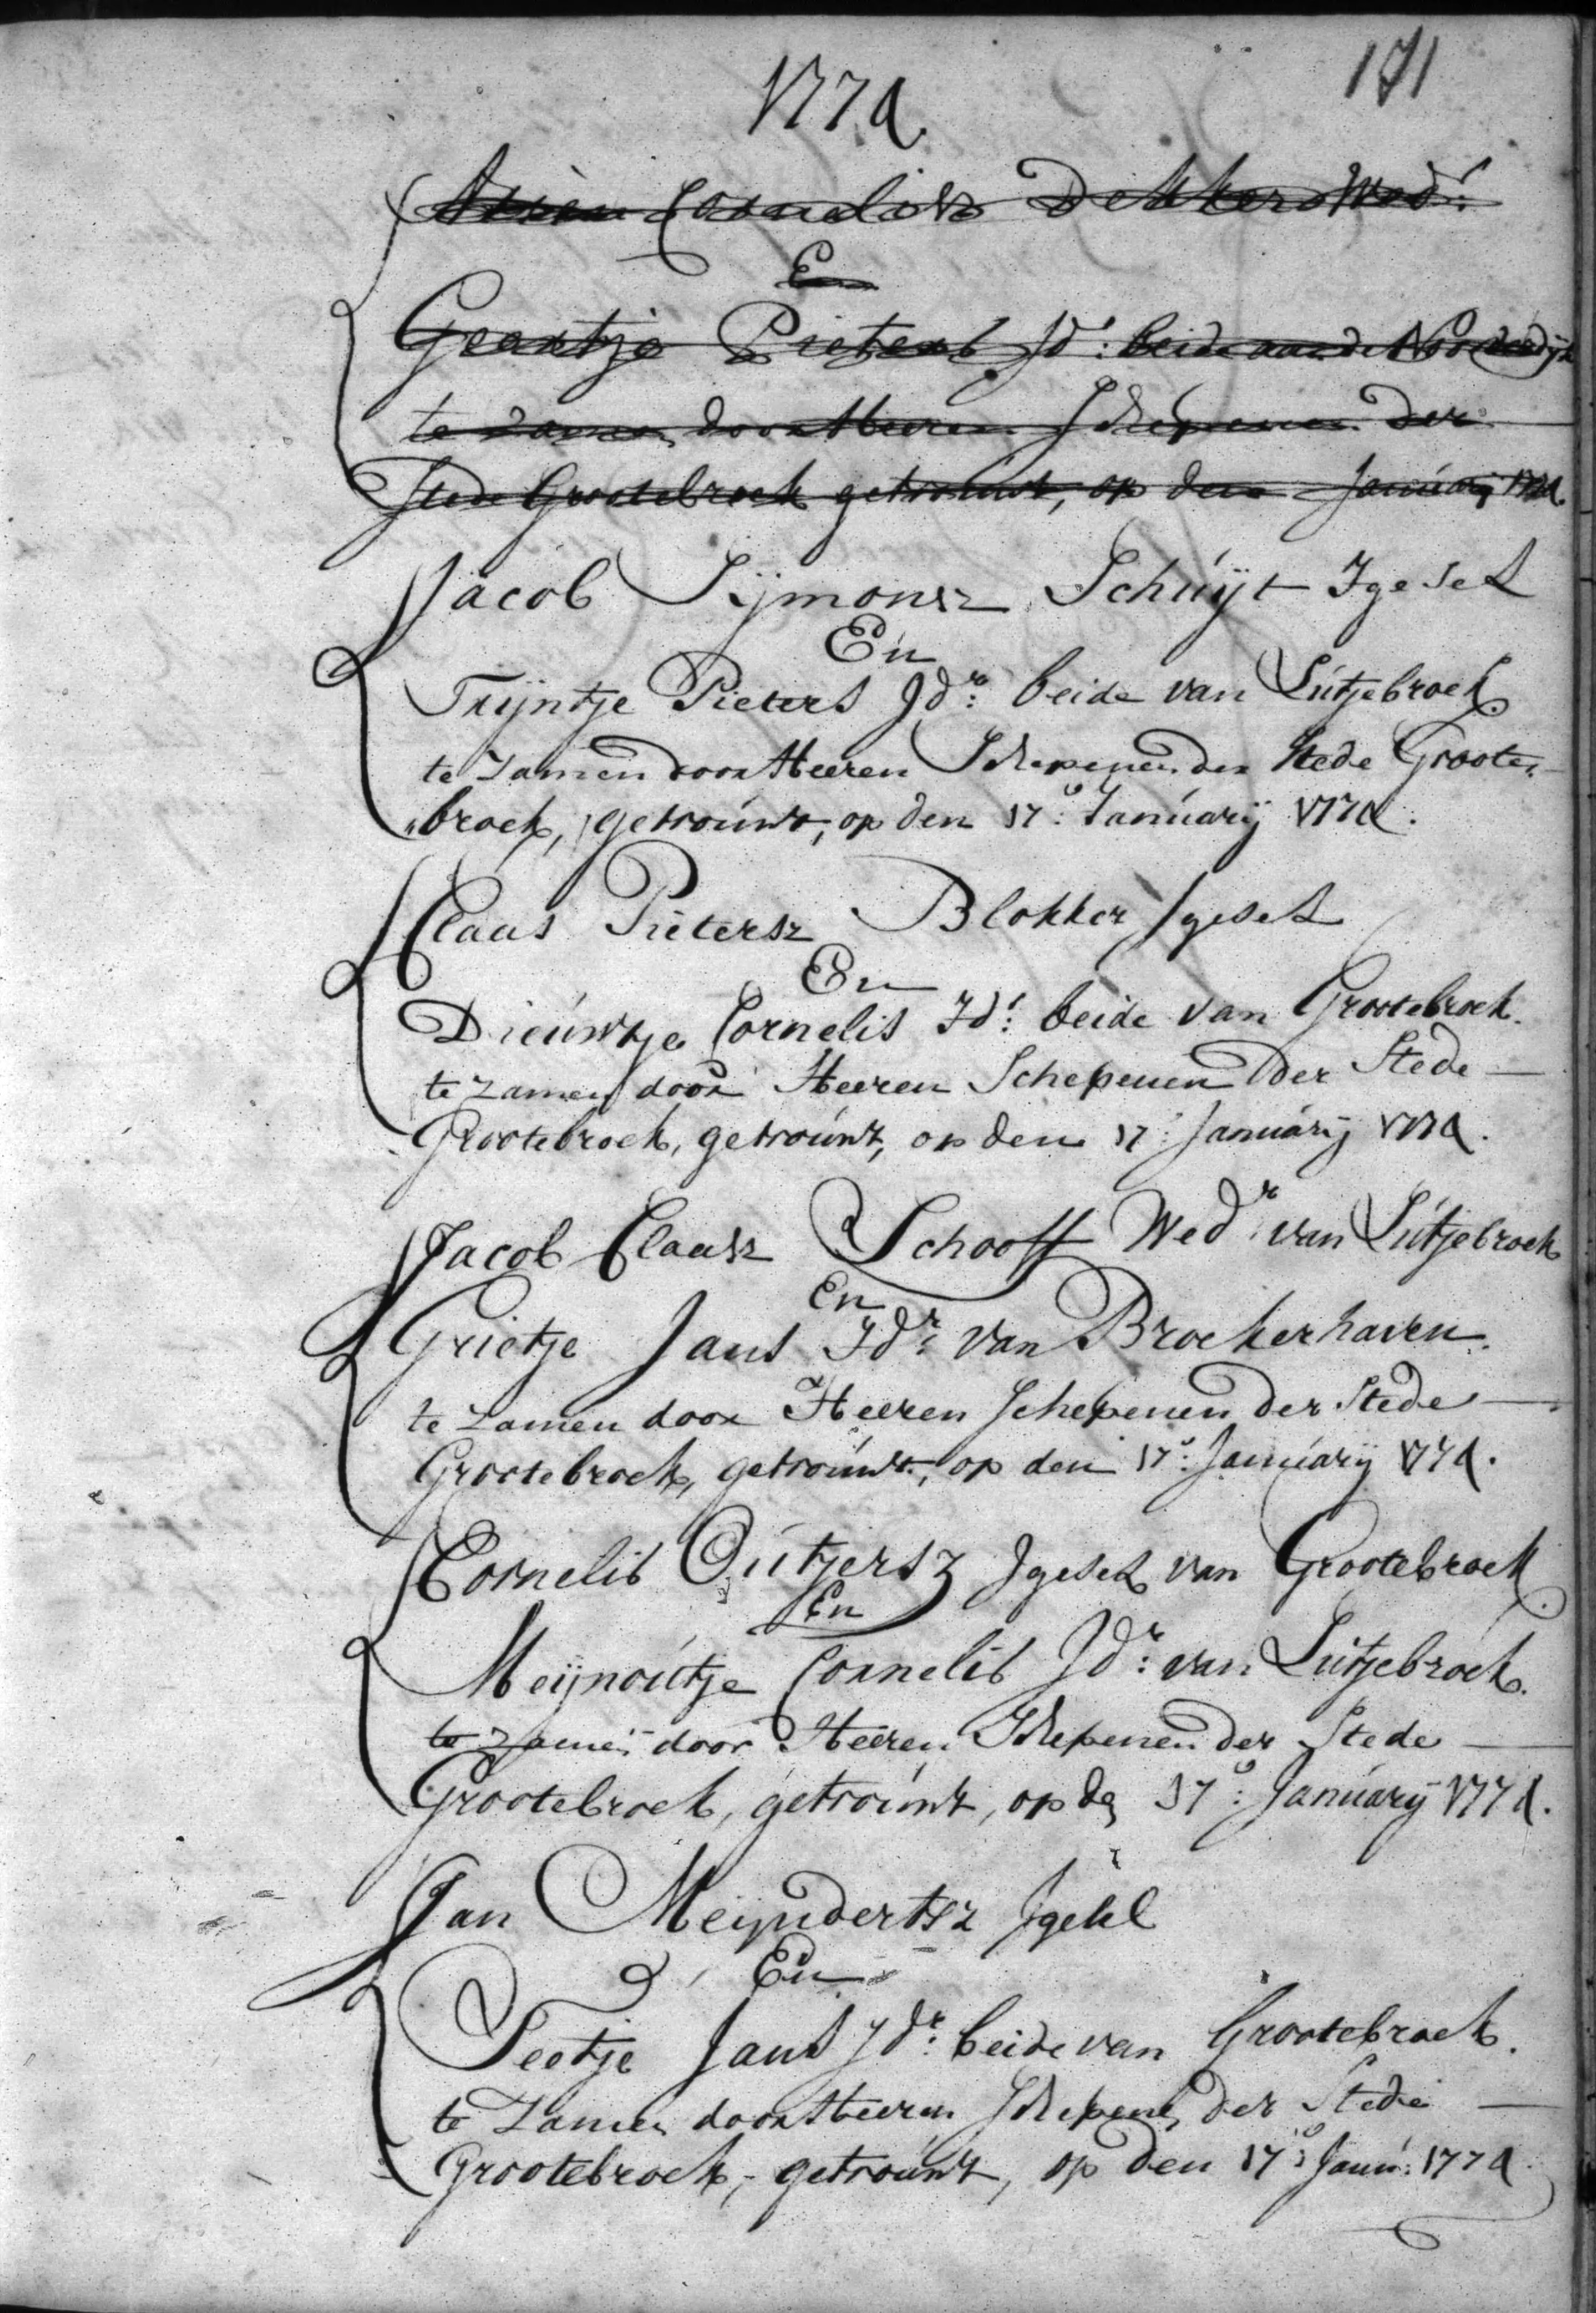 171
1774.
Arien Cornelisz Dekker Wedr:
En
Geertje Pieters Jdr: beide aan de Noorderdijk
te zamen door Heeren Schepenen der
Stede Grootebroek getrouwt, op den Januarij 1774.
Jacob Sijmonsz Schuijt Jgesel
En
Trijntje Pieters Jdr: beide van Lutjebroek.
te zamen door Heeren Schepenen der Stede Groote-
"broek, getrouwt, op den 17e: Januarij 1774.
Claas Pietersz Blokker Jgesel
En
Dieuwtje Cornelis Jdr: beide van Grootebroek.
te zamen door Heeren Schepenen der Stede
Grootebroek, getrouwt, op den 17: Januarij 1774.
Jacob Claasz Schooff Wedr: van Lutjebroek
En
Grietje Jans Jdr: van Broekerhaven.
te zamen door Heeren Schepenen der Stede
Grootebroek, getrouwt, op den 17e: Januarij 1774.
Cornelis Outjersz Jgesel van Grootebroek.
En
Meijnoutje Cornelis Jdr: van Lutjebroek.
te zamen door Heeren Schepenen der Stede
Grootebroek, getrouwt, op de 17e: Januarij 1774.
Jan Meijndertsz Jgesel
En
Peetje Jans Jdr: beide van Grootebroek.
te zamen door Heeren Schepenen der Stede
Grootebroek, getrouwt, op den 17e: Janu: 1774